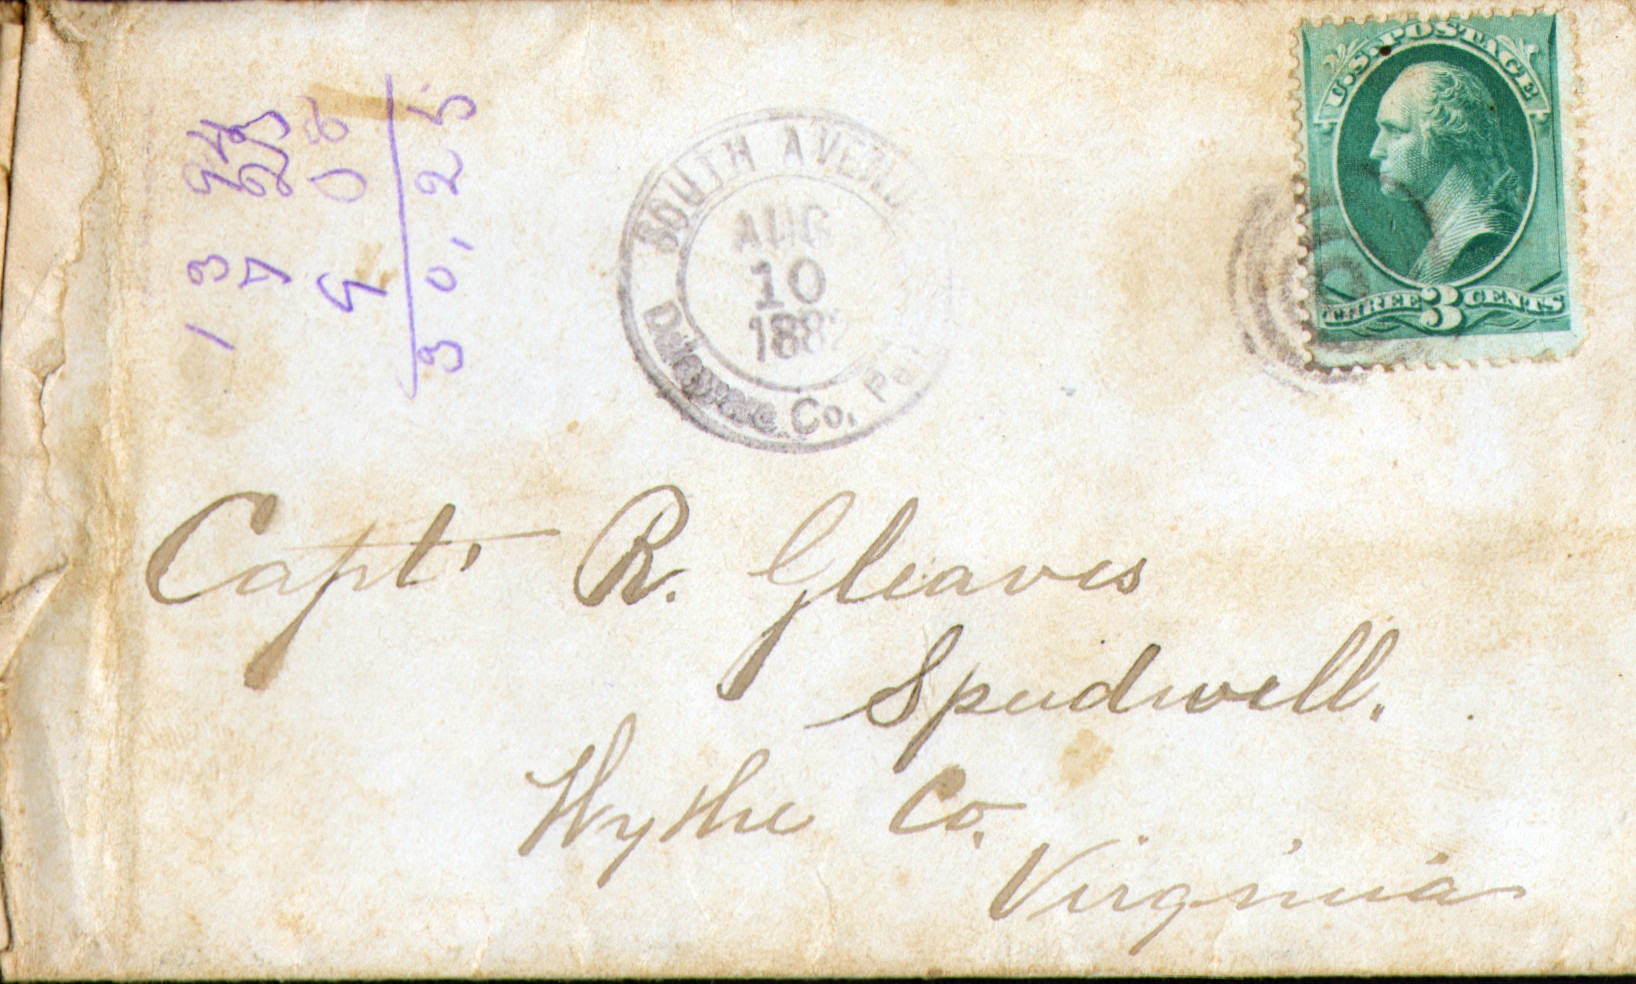 U.S. POSTAGE
THREE 3 CENTS
SOUTH AVENU
AUG
10
188
Delaware Co. Pa.
13 92
7 25
9 08
30,25
Capt. R. Gleaves
Speedwell.
Wythe Co.
Virginia